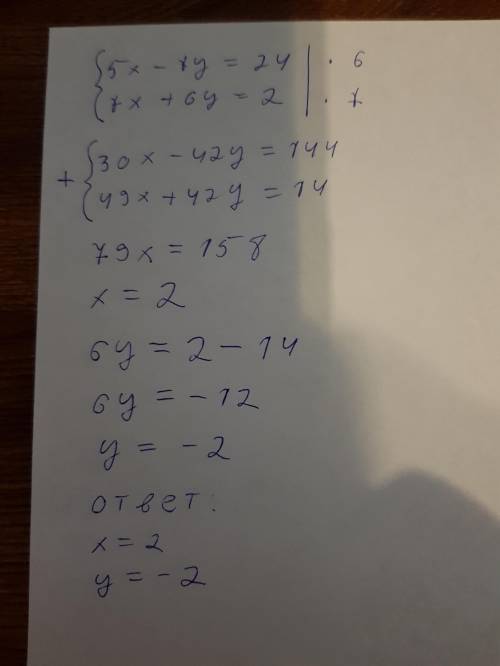 {5x - 7y = 24 | · 6
{7x + 6y = 2 | · 7
+ {30x - 42y = 144
{49x + 42y = 14
79x = 158
x = 2
6y = 2 - 14
6y = -12
y = -2
ответ:
x = 2
y = -2